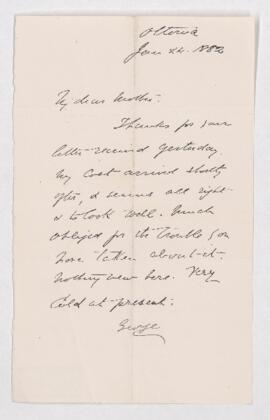 Ottawa
Jan 22. 1882
My dear Mother.
Thanks for your
letter received yesterday.
My coat arrived shortly
after, & seems all right
& to look well. Much
obliged for the trouble you
have taken about it.
Nothing new here. Very
Cold at present.
George